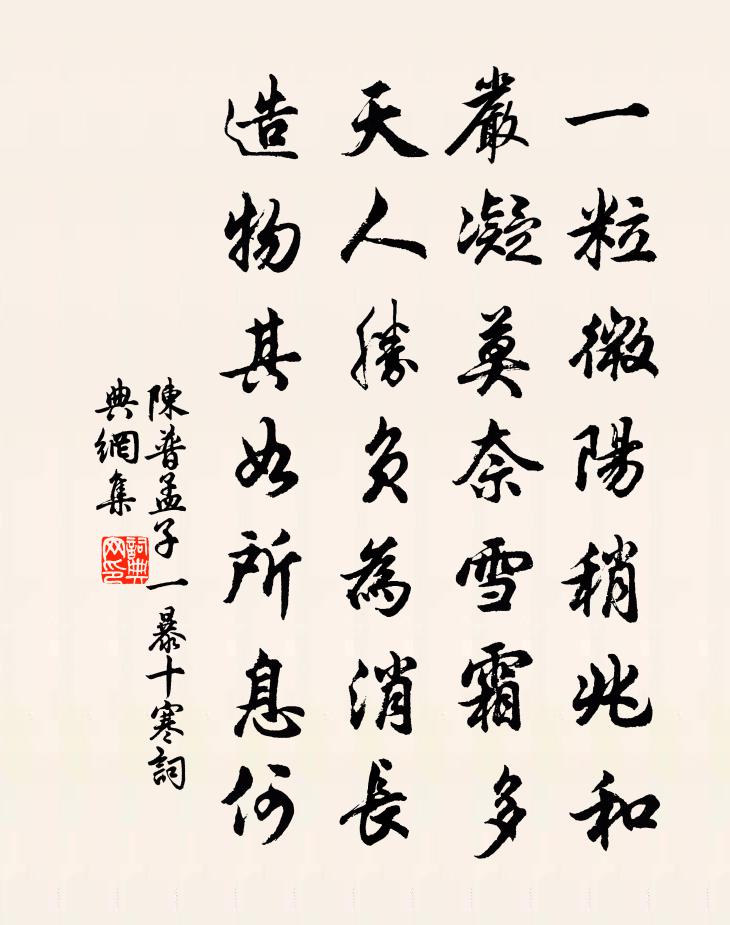 一粒微陽稍兆和
嚴凝莫奈雪霜多
天人勝負為消長
造物其如所息何
陳普孟子一暴十寒詞
典網集
詞典网印